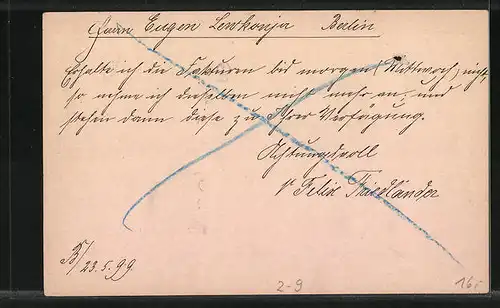 Herrn Eugen Lewkonja Berlin
Erhalte ich die Fakturen bis morgen (Mittwoch) nicht,
so nehme ich dieselben nicht mehr an, und
stehen dann diese zu Ihrer Verfügung.
Achtungsvoll
Felix Friedländer
B/ 23.5.99
2-9
16,-